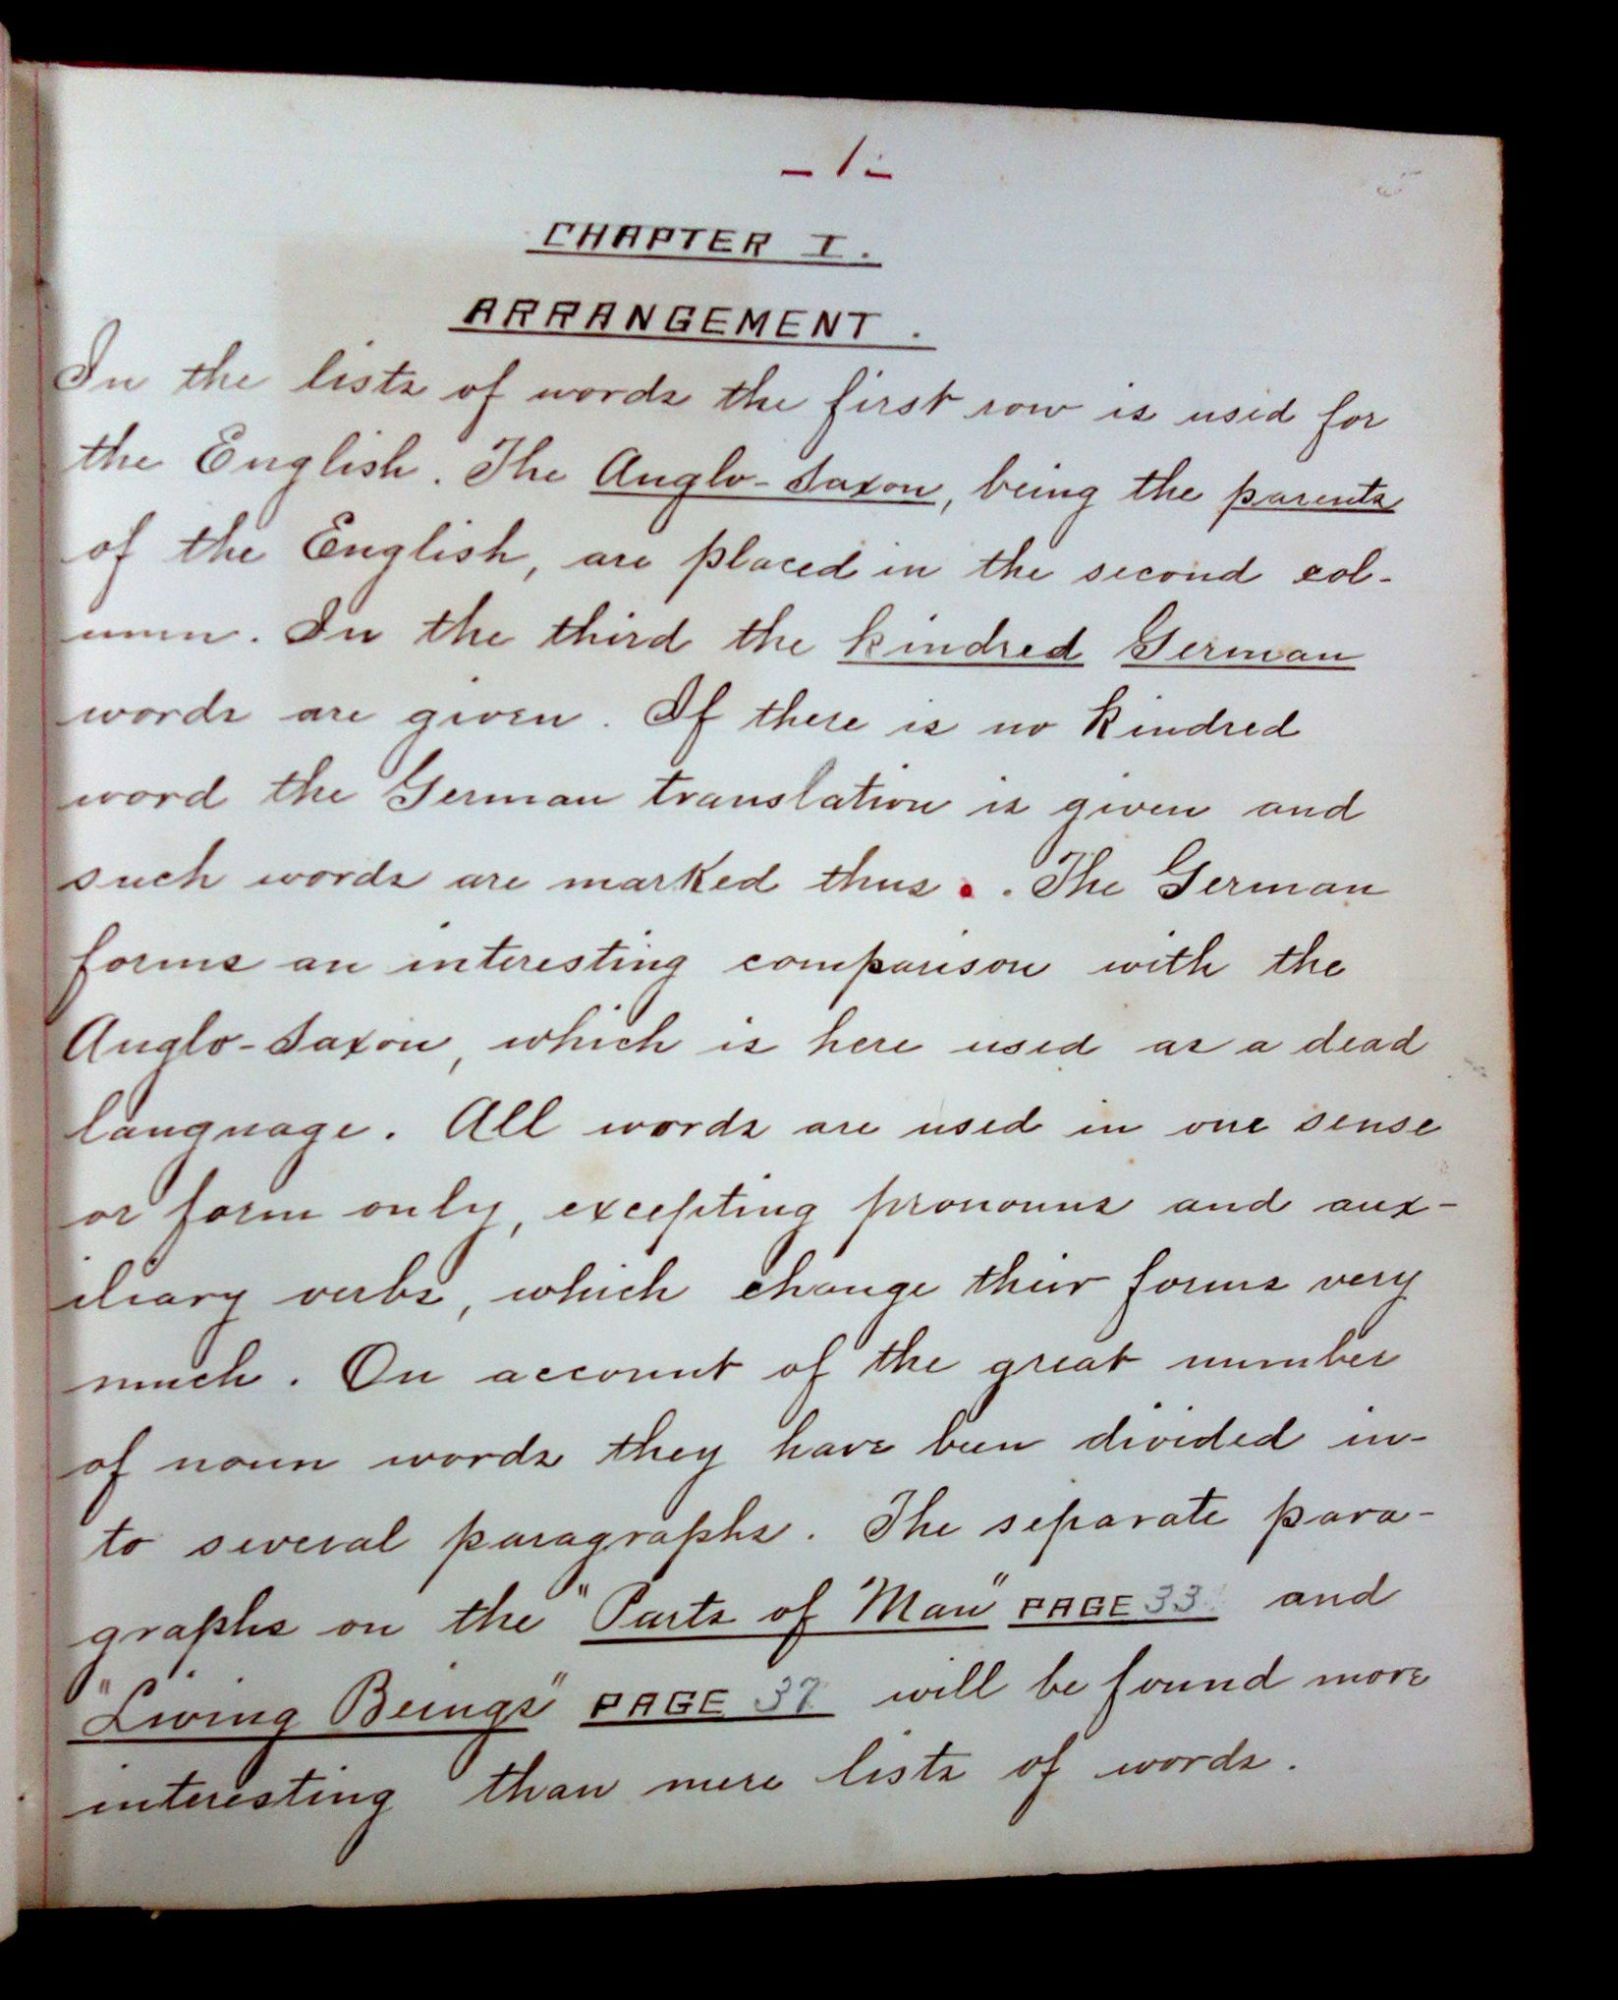 - 1 -
CHAPTER I.
ARRANGEMENT.
In the lists of words the first row is used for
the English. The Anglo-Saxon, being the parents
of the English, are placed in the second col-
umn. In the third the kindred German
words are given. If there is no kindred
word the German translation is given and
such words are marked thus • . The German
forms an interesting comparison with the
Anglo-Saxon, which is here used as a dead
language. All words are used in one sense
or form only, excepting pronouns and aux-
iliary verbs, which change their forms very
much. On account of the great number
of noun words they have been divided in-
to several paragraphs. The separate para-
graphs on the "Parts of Man" PAGE 33 and
"Living Beings" PAGE 37 will be found more
interesting than mere lists of words.